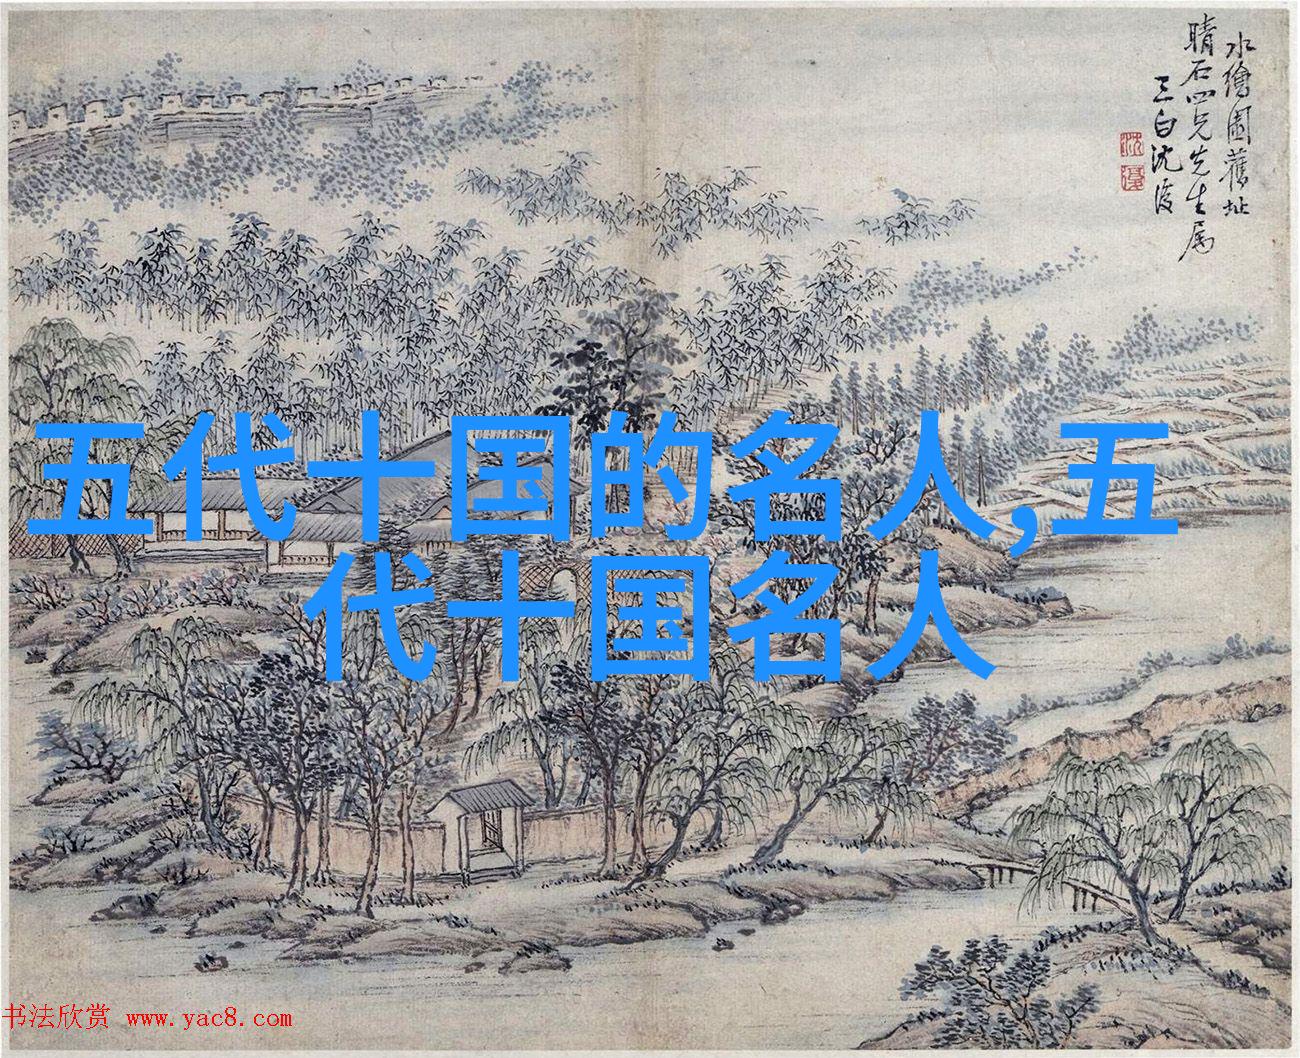 水繪園舊址
晴石四兄先生属
三白沈復
沈
復
五代十国的名人,五
代十国名人
书法欣赏 www.yac8.com